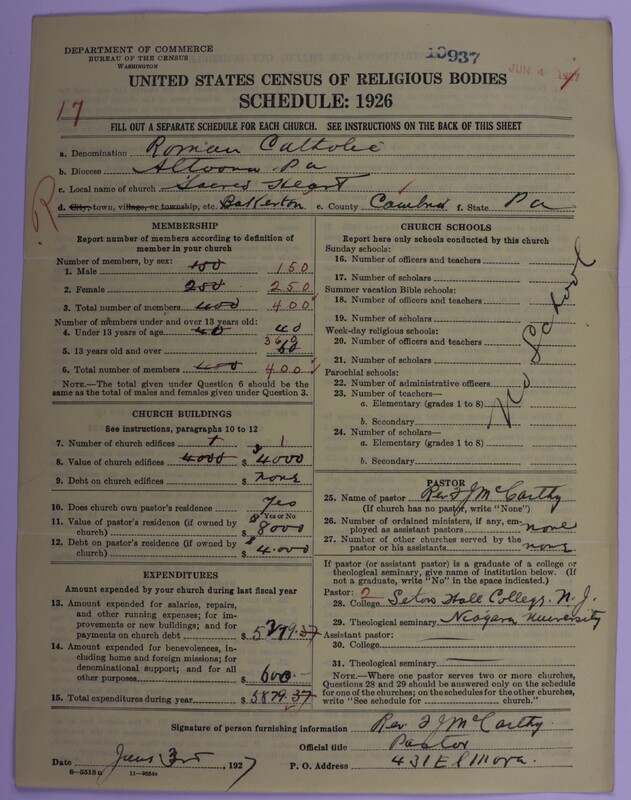 DEPARTMENT OF COMMERCE
BUREAU OF THE CENSUS
WASHINGTON
10937
JUN 4 1927
UNITED STATES CENSUS OF RELIGIOUS BODIES
SCHEDULE: 1926
17
FILL OUT A SEPARATE SCHEDULE FOR EACH CHURCH. SEE INSTRUCTIONS ON THE BACK OF THIS SHEET
a. Denomination Roman Catholic
b. Diocese Altoona Pa
c. Local name of church Sacred Heart
R
d. City, town, village, or township, etc. Bakerton e. County Cambria f. State Pa
MEMBERSHIP
Report number of members according to definition of
member in your church
Number of members, by sex:
1. Male 150 150
2. Female 250 250
3. Total number of members 400 400
Number of members under and over 13 years old:
4. Under 13 years of age 40 40
5. 13 years old and over 360
6. Total number of members 400 400
NOTE.—The total given under Question 6 should be
same as the total of males and females given under Question 3.
CHURCH BUILDINGS
See instructions, paragraphs 10 to 12
7. Number of church edifices 1 1
8. Value of church edifices 4000 $ 4000
9. Debt on church edifices $ none
10. Does church own pastor's residence Yes
Yes or No
11. Value of pastor's residence (if owned by
church) $ 8000
12. Debt on pastor's residence (if owned by
church) $ 4.000
EXPENDITURES
Amount expended by your church during last fiscal year
13. Amount expended for salaries, repairs,
and other running expenses; for im-
provements or new buildings; and for
payments on church debt $ 5279.37
14. Amount expended for benevolences, in-
cluding home and foreign missions; for
denominational support; and for all
other purposes $ 600.—
15. Total expenditures during year $ 5879.37
CHURCH SCHOOLS
Report here only schools conducted by this church
Sunday schools:
16. Number of officers and teachers
17. Number of scholars
Summer vacation Bible schools:
18. Number of officers and teachers
19. Number of scholars
Week-day religious schools:
20. Number of officers and teachers
21. Number of scholars
Parochial schools:
22. Number of administrative officers
23. Number of teachers—
a. Elementary (grades 1 to 8)
b. Secondary
24. Number of scholars—
a. Elementary (grades 1 to 8)
b. Secondary
No School
PASTOR
25. Name of pastor Rev F J McCarthy
(If church has no pastor, write "None")
26. Number of ordained ministers, if any, em-
ployed as assistant pastors none
27. Number of other churches served by the
pastor or his assistants none
If pastor (or assistant pastor) is a graduate of a college or
theological seminary, give name of institution below. (If
not a graduate, write "No" in the space indicated.)
Pastor: 2
28. College Seton Hall College. N. J.
29. Theological seminary Niagara University
Assistant pastor:
30. College
31. Theological seminary
NOTE.—Where one pastor serves two or more churches,
Questions 28 and 29 should be answered only on the schedule
for one of the churches; on the schedules for the other churches,
write "See schedule for church."
Signature of person furnishing information Rev F J McCarthy
Official title Pastor
Date June 3rd, 1927 P. O. Address 431 Elmora.
8—5518a 11—9554a